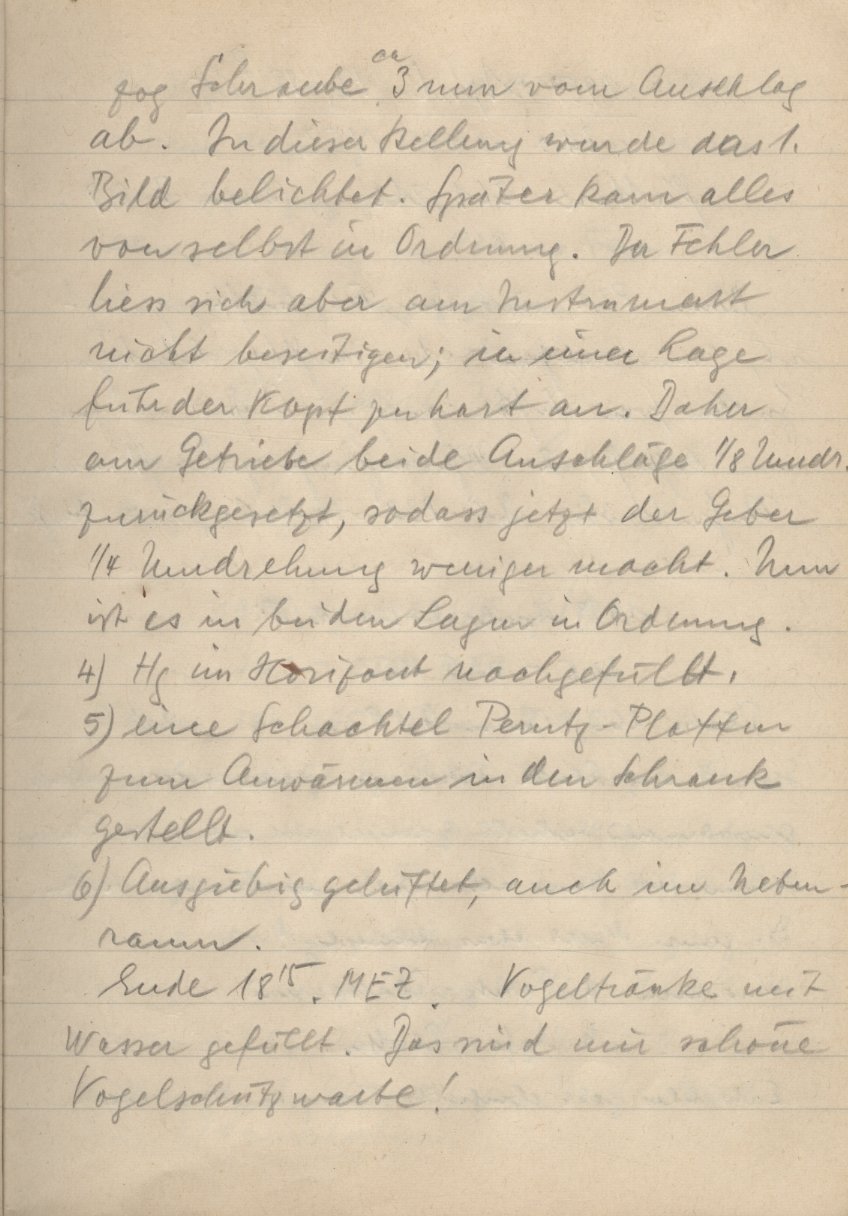 zog Schraube ca 3 mm vom Anschlag
ab. In dieser Stellung wurde das 1.
Bild belichtet. Später kam alles
von selbst in Ordnung. Der Fehler
liess sich aber am Instrument
nicht beseitigen; in einer Lage
fuhr der Kopf zu hart an. Daher
am Getriebe beide Anschläge 1/8 Umdr.
zurückgesetzt, sodass jetzt der Geber
1/4 Umdrehung weniger macht. Nun
ist es in beiden Lagen in Ordnung.
4) Hg im Horizont nachgefüllt.
5) eine Schachtel Perutz-Platten
zum Anwärmen in den Schrank
gestellt.
6) Ausgiebig gelüftet, auch im Neben-
raum.
Ende 18 15. MEZ. Vogeltränke mit
Wasser gefüllt. Das sind mir schöne
Vogelschutzwarte!